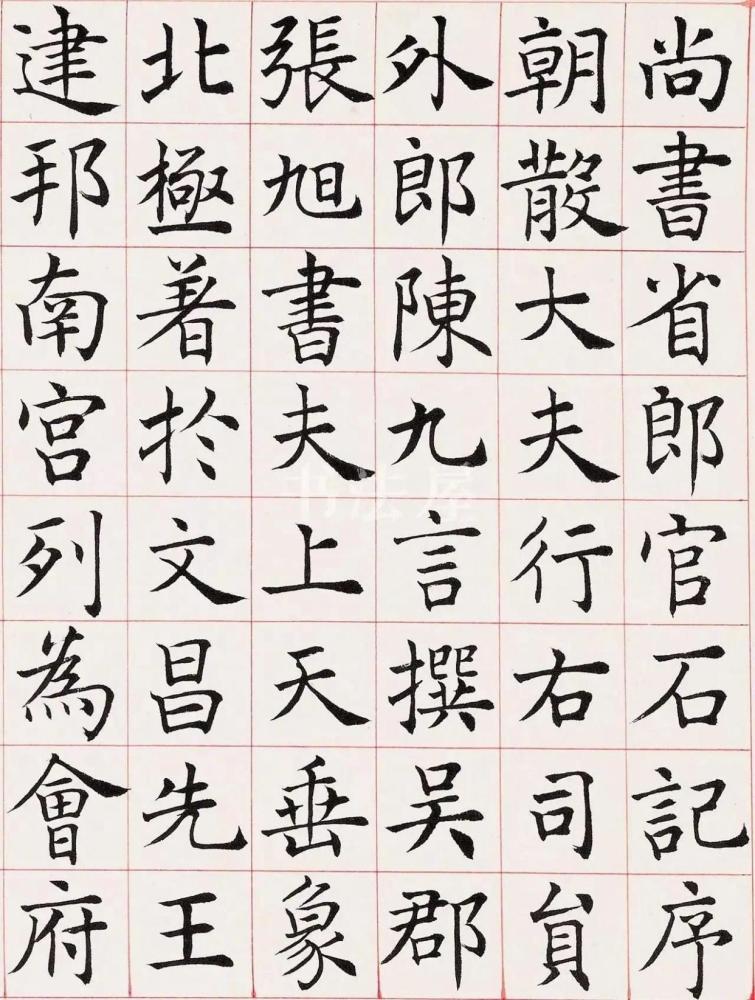 尚書省郎官石記序
朝散大夫行右司貟
外郎陳九言撰吳郡
張旭書夫上天垂象
北極著於文昌先王
建邦南宮列為會府
书法屋